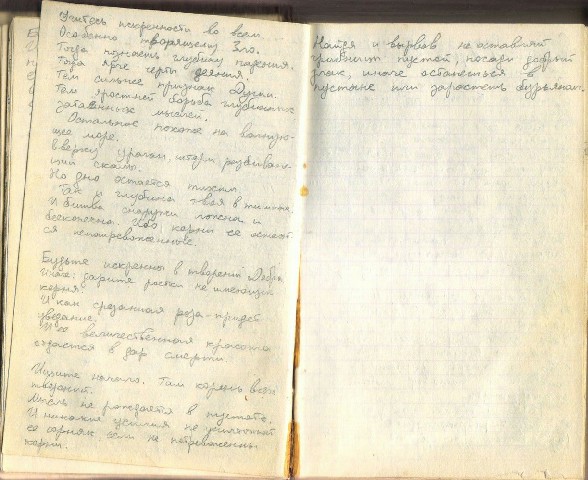 Учитесь искренности во всем.
Особенно творящему Зло.
Тогда познаешь глубину падения.
Тогда ярче черты деяния.
Тем сильнее признак Души.
Тем яростней борьба глубинных
затаённых мыслей.
Остальное похоже на волную-
щее море.
Вверху ураган, шторм разбиваю-
щий скалы.
Но дно остается тихим.
Так и глубина твоя в тишине.
И битва снаружи ложна и
бесконечна. Ибо, корни ее остают-
ся непотревоженные.
Будьте искренны в творении Добра.
Иначе: дарите ростки не имеющие
корня.
И как срезанная роза - придет
увядание.
И её величественная красота
отдастся в дар смерти.
Ищите начало. Там корень всех
творений.
Мысль не рождается в пустоте.
И никакие усилия не уничтожат
ее сорняк, если не потревожены
корни.
Найдя и вырвав не оставляй
пустой, посади добрый
злак, иначе останешься в
пустыне или зарастешь бурьяном.